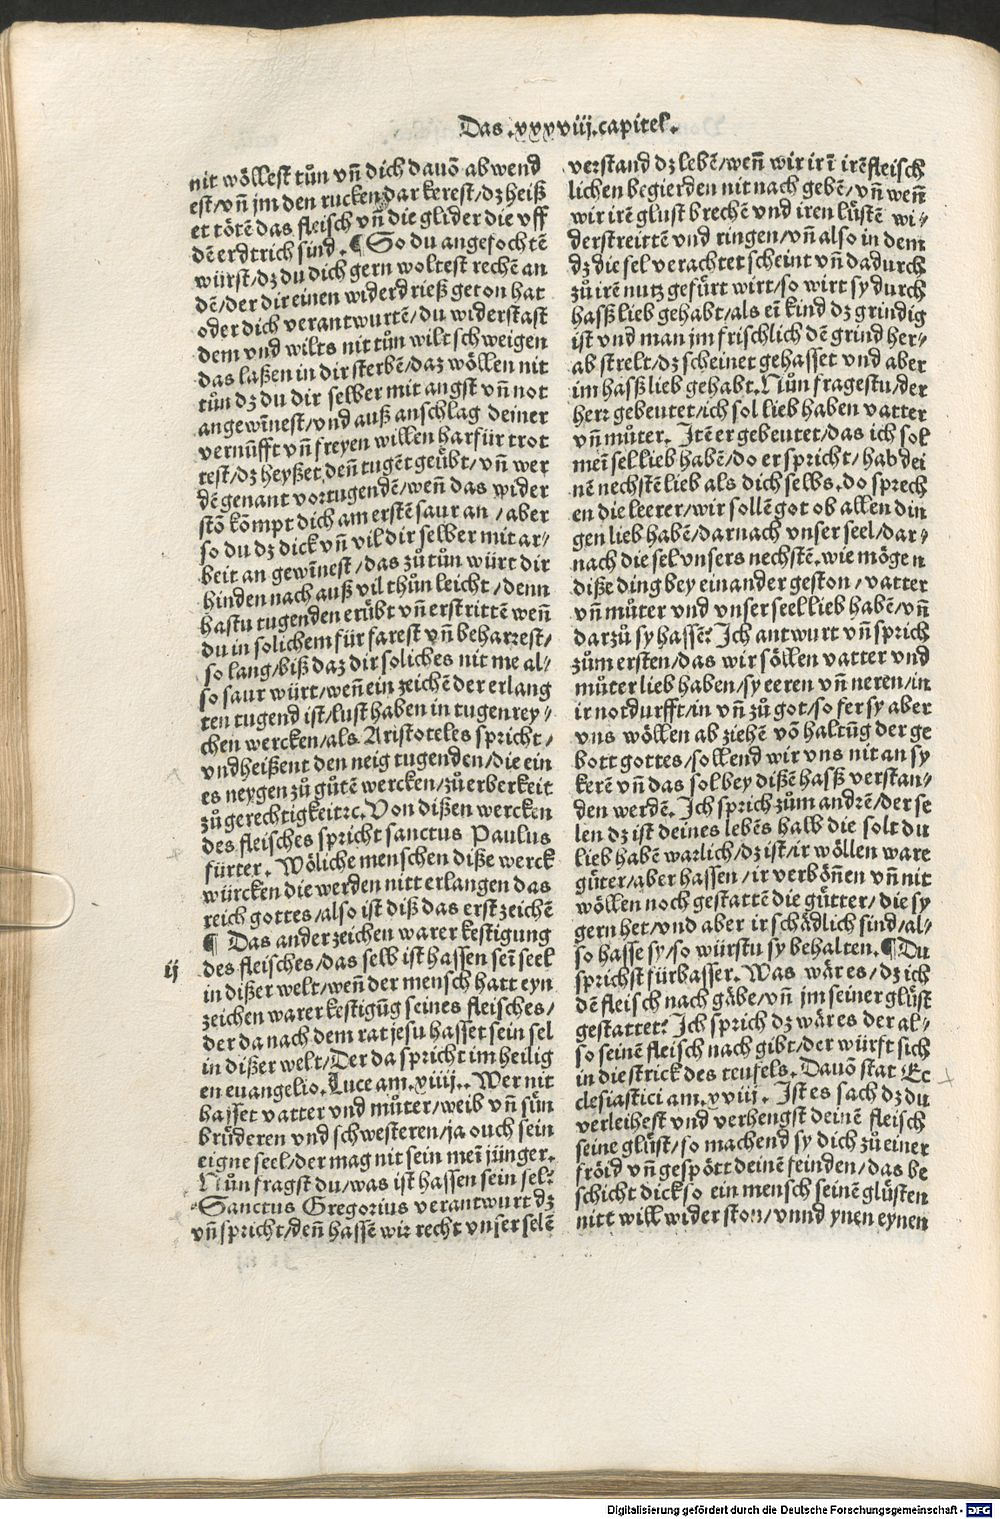 Das .xxxviij. capitel.
nit wöllest tůn vñ dich dauõ abwend
est/vñ jm den rucken dar kerest/dz heiß
et tötẽ das fleisch vñ die glider die vff
dẽ erdtrich sind. ¶ So du angefochtẽ
würst/dz du dich gern woltest rechẽ an
dẽ/der dir einen widerdrieß geton hat
oder dich verantwurtẽ/du widerstast
dem vnd wilts nit tůn wilt schweigen
das laßen in dir sterbẽ/daz wöllen nit
tůn dz du dir selber mit angst vñ not
angewĩnest/vnd auß anschlag deiner
vernũfft vñ freyen willen harfür trot
test/dz heyßet deñ tugẽt geübt/vñ wer
dẽ genant vortugendẽ/weñ das wider
stõ kompt dich am erstẽ saur an/aber
so du dz dick vñ vil dir selber mit ar⸗
beit an gewĩnest/das zů tůn würt dir
hinden nach auß vil thůn leicht/denn
hastu tugenden erübt vñ erstrittẽ weñ
du in solichem für farest vñ beharrest/
so lang/biß daz dir soliches nit me al⸗
so saur würt/weñ ein zeichẽ der erlang
ten tugend ist/lust haben in tugenrey⸗
chen wercken/als Aristoteles spricht/
vnd heißent den neig tugenden/die ein
es neygen zů gůtẽ wercken/zů erberkeit
zů gerechtigkeit ꝛc. Von dißen wercken
des fleisches spricht sanctus Paulus
fürter. Wöliche menschen diße werck
würcken die werden nitt erlangen das
reich gottes/also ist diß das erst zeichẽ
¶ Das ander zeichen warer kestigung
ij
des fleisches/das selb ist hassen seĩ seel
in dißer welt/weñ der mensch hatt eyn
zeichen warer kestigũg seines fleisches/
der da nach dem rat jesu hasset sein sel
in dißer welt/Der da spricht im heilig
en euangelio. Luce am .xiiij.. Wer nit
hasset vatter vnd můter/weib vñ sün
brüderen vnd schwesteren/ja ouch sein
eigne seel/der mag nit sein meĩ jünger.
Nůn fragst du/was ist hassen sein sel?
Sanctus Gregorius verantwurt dz
vñ spricht/deñ hassen wir recht vnser selẽ
verstand dz lebẽ/weñ wir ir ĩ irẽ fleisch
lichen begierden nit nach gebẽ/vñ weñ
wir irẽ glust brechẽ vnd iren lüstẽ wi⸗
derstreittẽ vnd ringen/vñ also in dem
dz die sel verachtet scheint vñ dadurch
zů irẽ nutz gefürt wirt/so wirt sy durch
haß lieb gehabt/als eĩ kind dz grindig
ist vnd man jm frischlich dẽ grind her⸗
ab strelt/dz scheinet gehasset vnd aber
im haß lieb gehabt. Nůn fragestu/der
herr gebeutet/ich sol lieb haben vatter
vñ můter. Itẽ er gebeutet/das ich sol
meĩ sel lieb habẽ/do er spricht/hab dei
nẽ nechstẽ lieb als dich selbs. do sprech
en die leerer/wir sollẽ got ob allen din
gen lieb habẽ/darnach vnser seel/dar⸗
nach die sel vnsers nechstẽ. wie mögen
diße ding bey einander geston/vatter
vñ můter vnd vnser seel lieb habẽ/vñ
darzů sy hassẽ? Ich antwurt vñ sprich
zům ersten/das wir söllen vatter vnd
můter lieb haben/sy eeren vñ neren/in
ir notdurfft/in vñ zů got/so fer sy aber
vns wöllen ab ziehẽ võ haltũg der ge
bott gottes/sollend wir vns nit an sy
kerẽ vñ das sol bey dißẽ haß verstan⸗
den werdẽ. Ich sprich zům andrẽ/der se
len dz ist deines lebẽs halb die solt du
lieb habẽ warlich/dz ist/ir wöllen ware
güter/aber hassen/ir verbönnẽ vñ nit
wöllen noch gestattẽ die gütter/die sy
gern het/vnd aber ir schädlich sind/al⸗
so hasse sy/so würstu sy behalten. ¶ Du
sprichst fürbasser. Was wär es/dz ich
dẽ fleisch nach gäbe/vñ jm seiner glüst
gestattet? Ich sprich dz wär es der al⸗
so seinẽ fleisch nach gibt/der würft sich
in die strick des teufels. Dauõ stat Ec
clesiastici am .xviij. Ist es sach dz du
verleihest vnd verhengst deinẽ fleisch
seine glüst/so machend sy dich zů einer
fröid vñ gespött deinẽ feinden/das be
schicht dick so ein mensch seinẽ glüsten
nitt will wider ston/vnnd ynen eynen
Digitalisierung gefördert durch die Deutsche Forschungsgemeinschaft - DFG